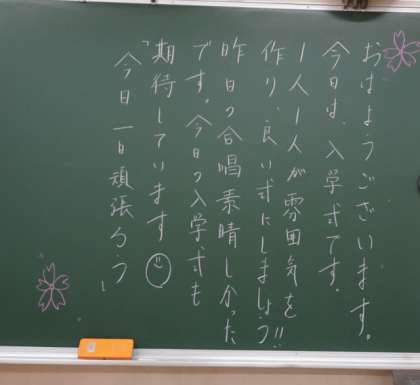 おはようございます。
今日は、入学式です。
1人1人が雰囲気を
作り、良い式にしましょう!!
昨日の合唱素晴しかった
です。今日の入学式も
期待しています
「今日一日頑張ろう」